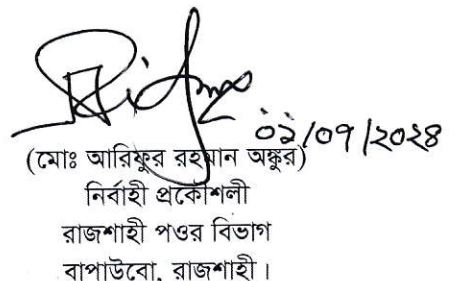 ০২/০৭/২০২৪
(মোঃ আরিফুর রহমান অঙ্কুর)
নির্বাহী প্রকৌশলী
রাজশাহী পওর বিভাগ
বাপাউবো, রাজশাহী।